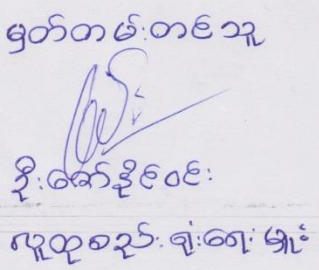 မှတ်တမ်းတင်သူ
ဦးဇော်နိုင်ဝင်း
လူထုစည်းရုံးရေးမှူး